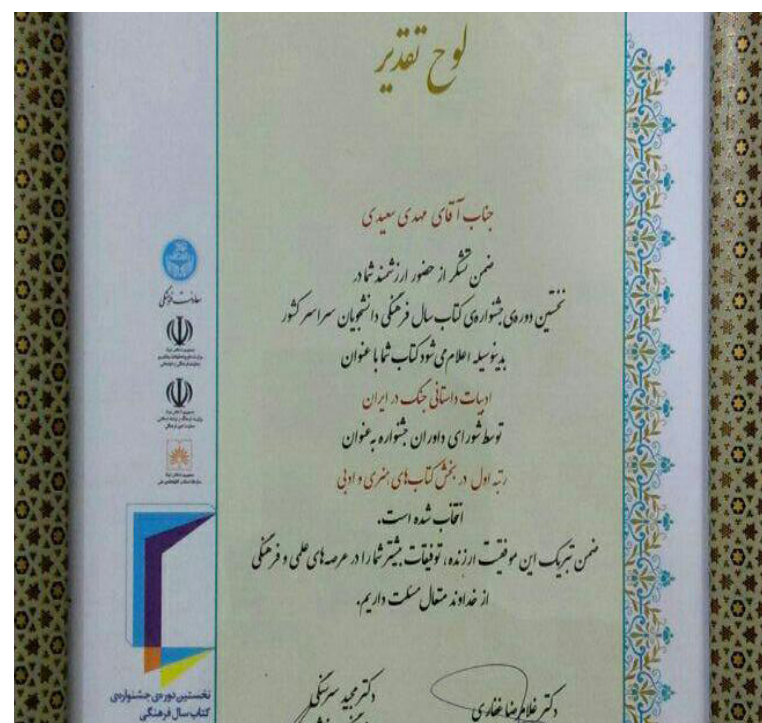 لوح تقدیر
جناب آقای مهدی سعیدی
ضمن تشکر از حضور ارزشمند شما در
نخستین دوره‌ی جشنواره‌ی کتاب سال فرهنگی دانشجویان سراسر کشور
بدینوسیله اعلام می شود کتاب شما با عنوان
ادبیات داستانی جنگ در ایران
توسط شورای داوران جشنواره به عنوان
رتبه اول در بخش کتاب‌های هنری و ادبی
انتخاب شده است.
ضمن تبریک این موفقیت ارزنده، توفیقات بیشتر شما را در عرصه‌های علمی و فرهنگی
از خداوند متعال مسئلت داریم.
دکتر غلامرضا غفاری
دکتر مجید سرسنگی
معاونت فرهنگی
نخستین دوره‌ی جشنواره‌ی
کتاب سال فرهنگی